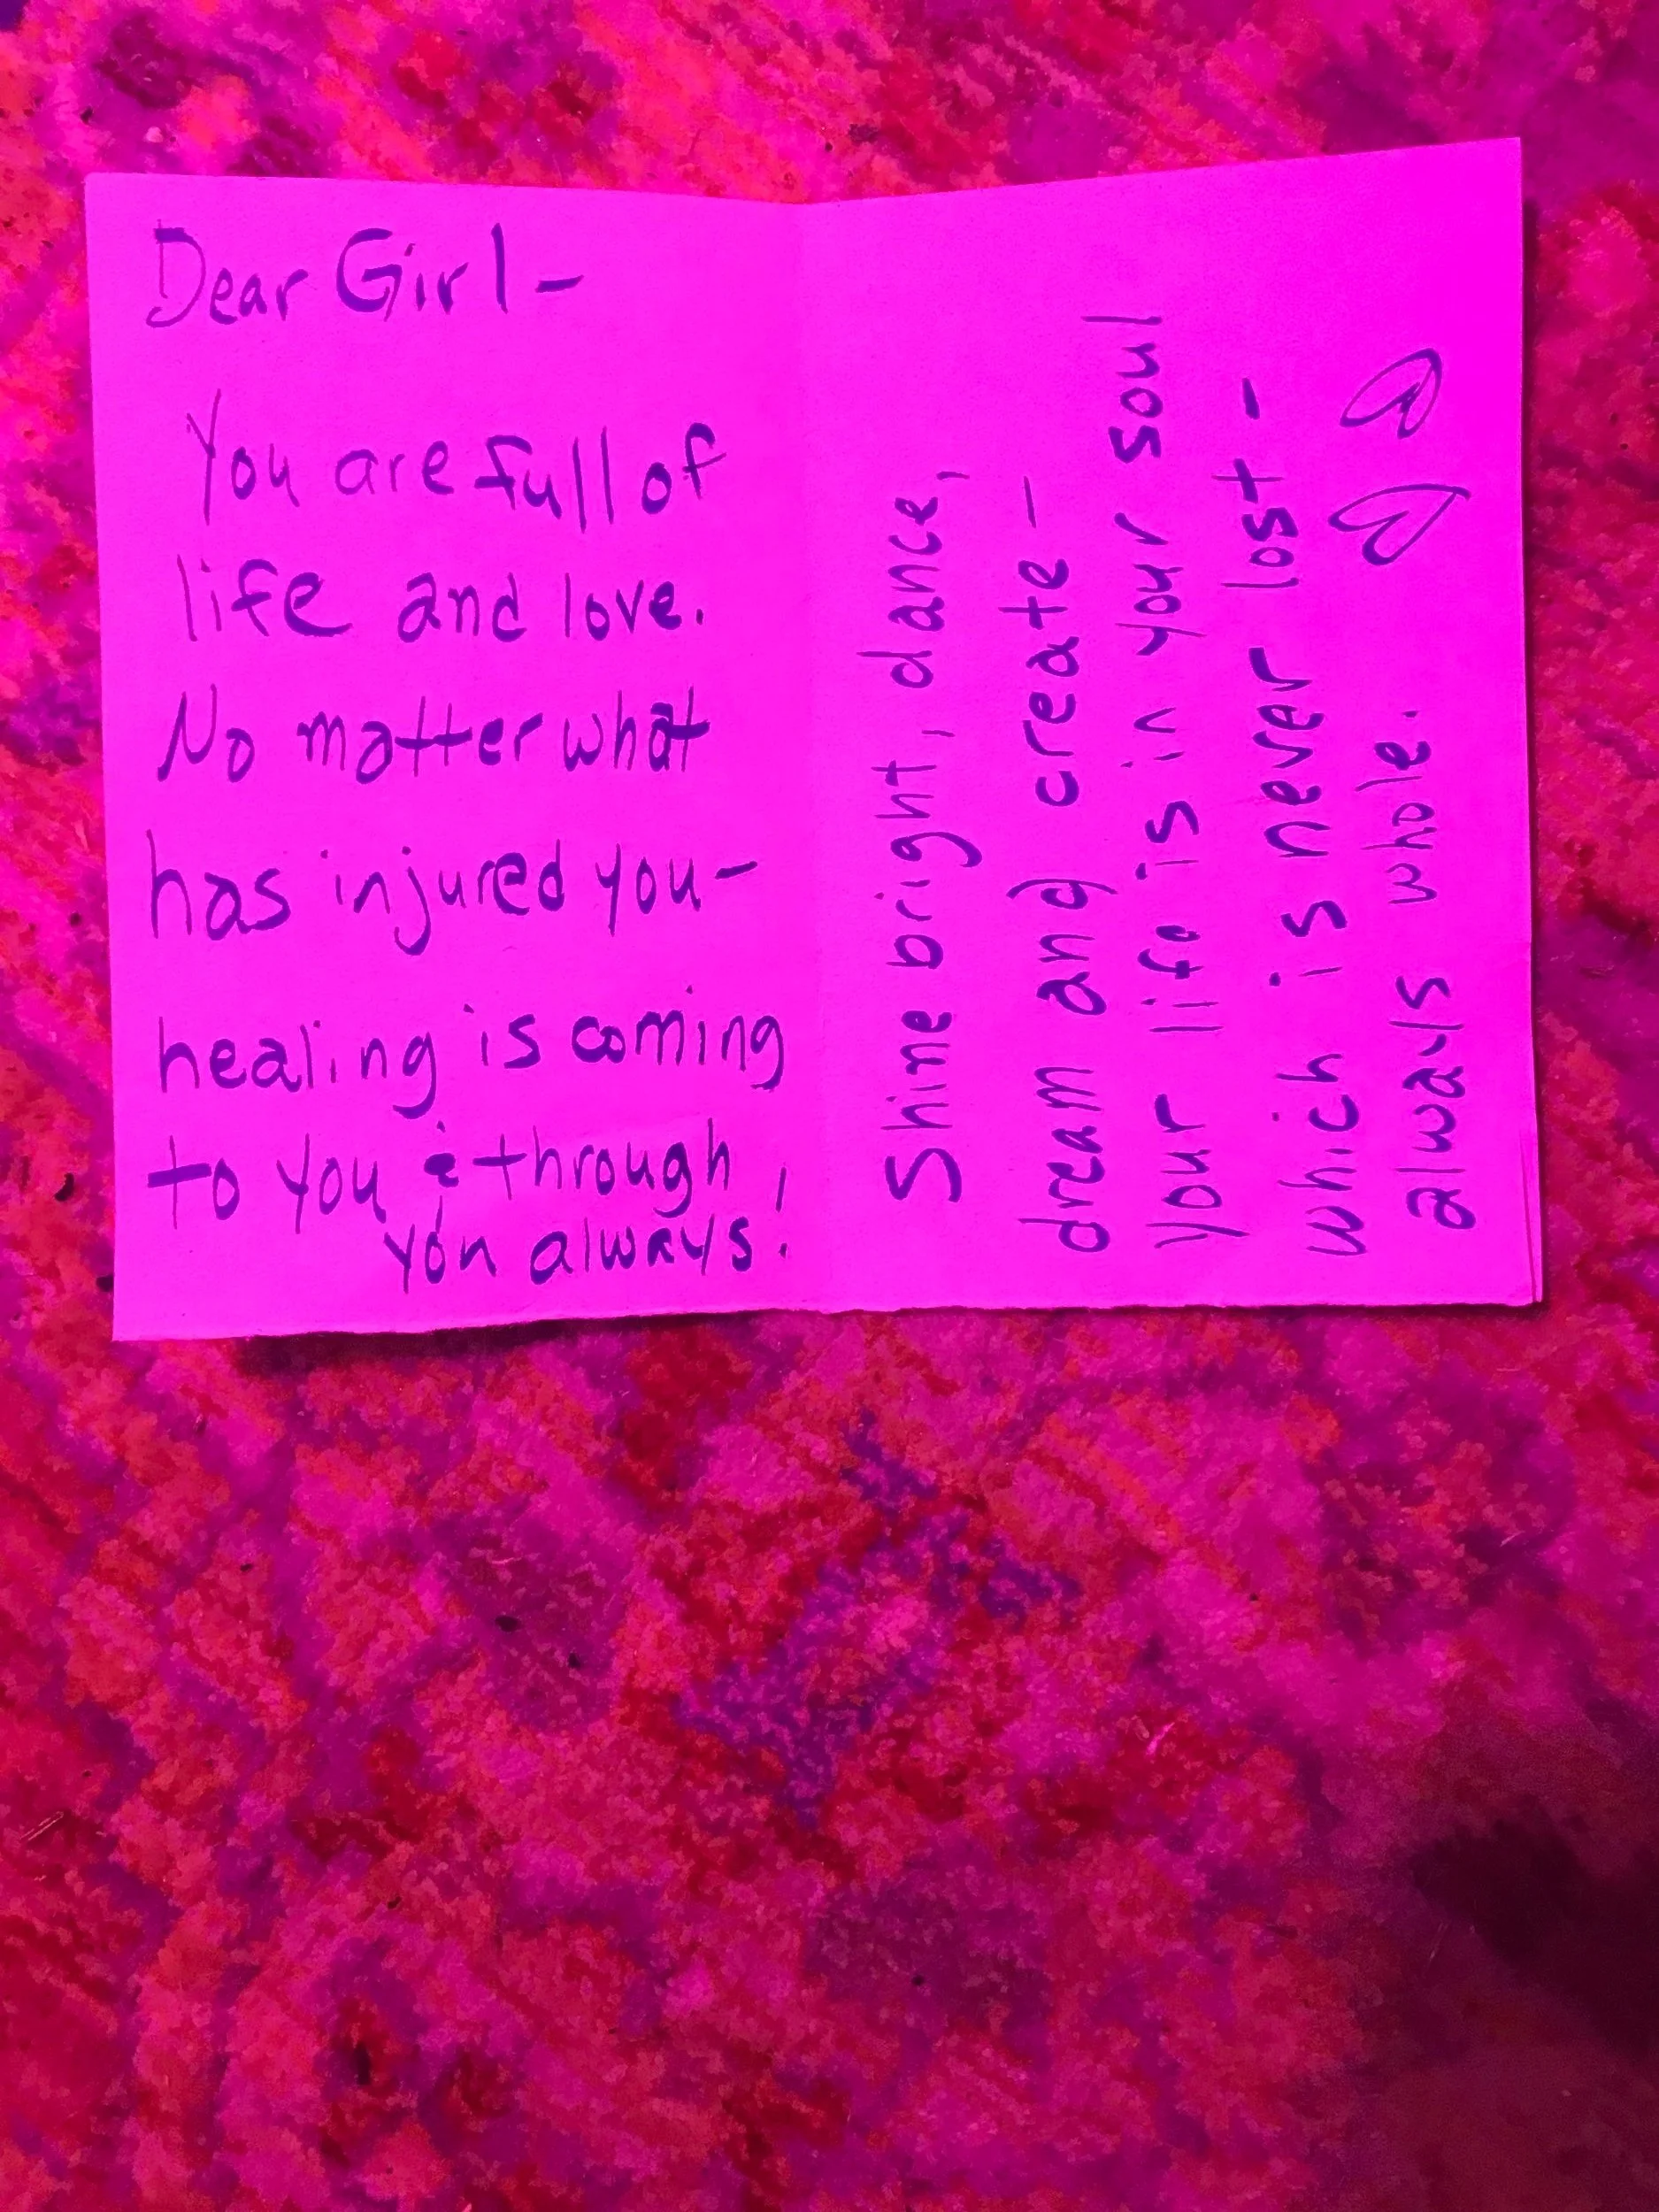 Dear Girl-
You are full of
life and love.
No matter what
has injured you-
healing is coming
to you & through
you always!
Shine bright, dance,
dream and create-
your life is in your soul
which is never lost-
always whole.